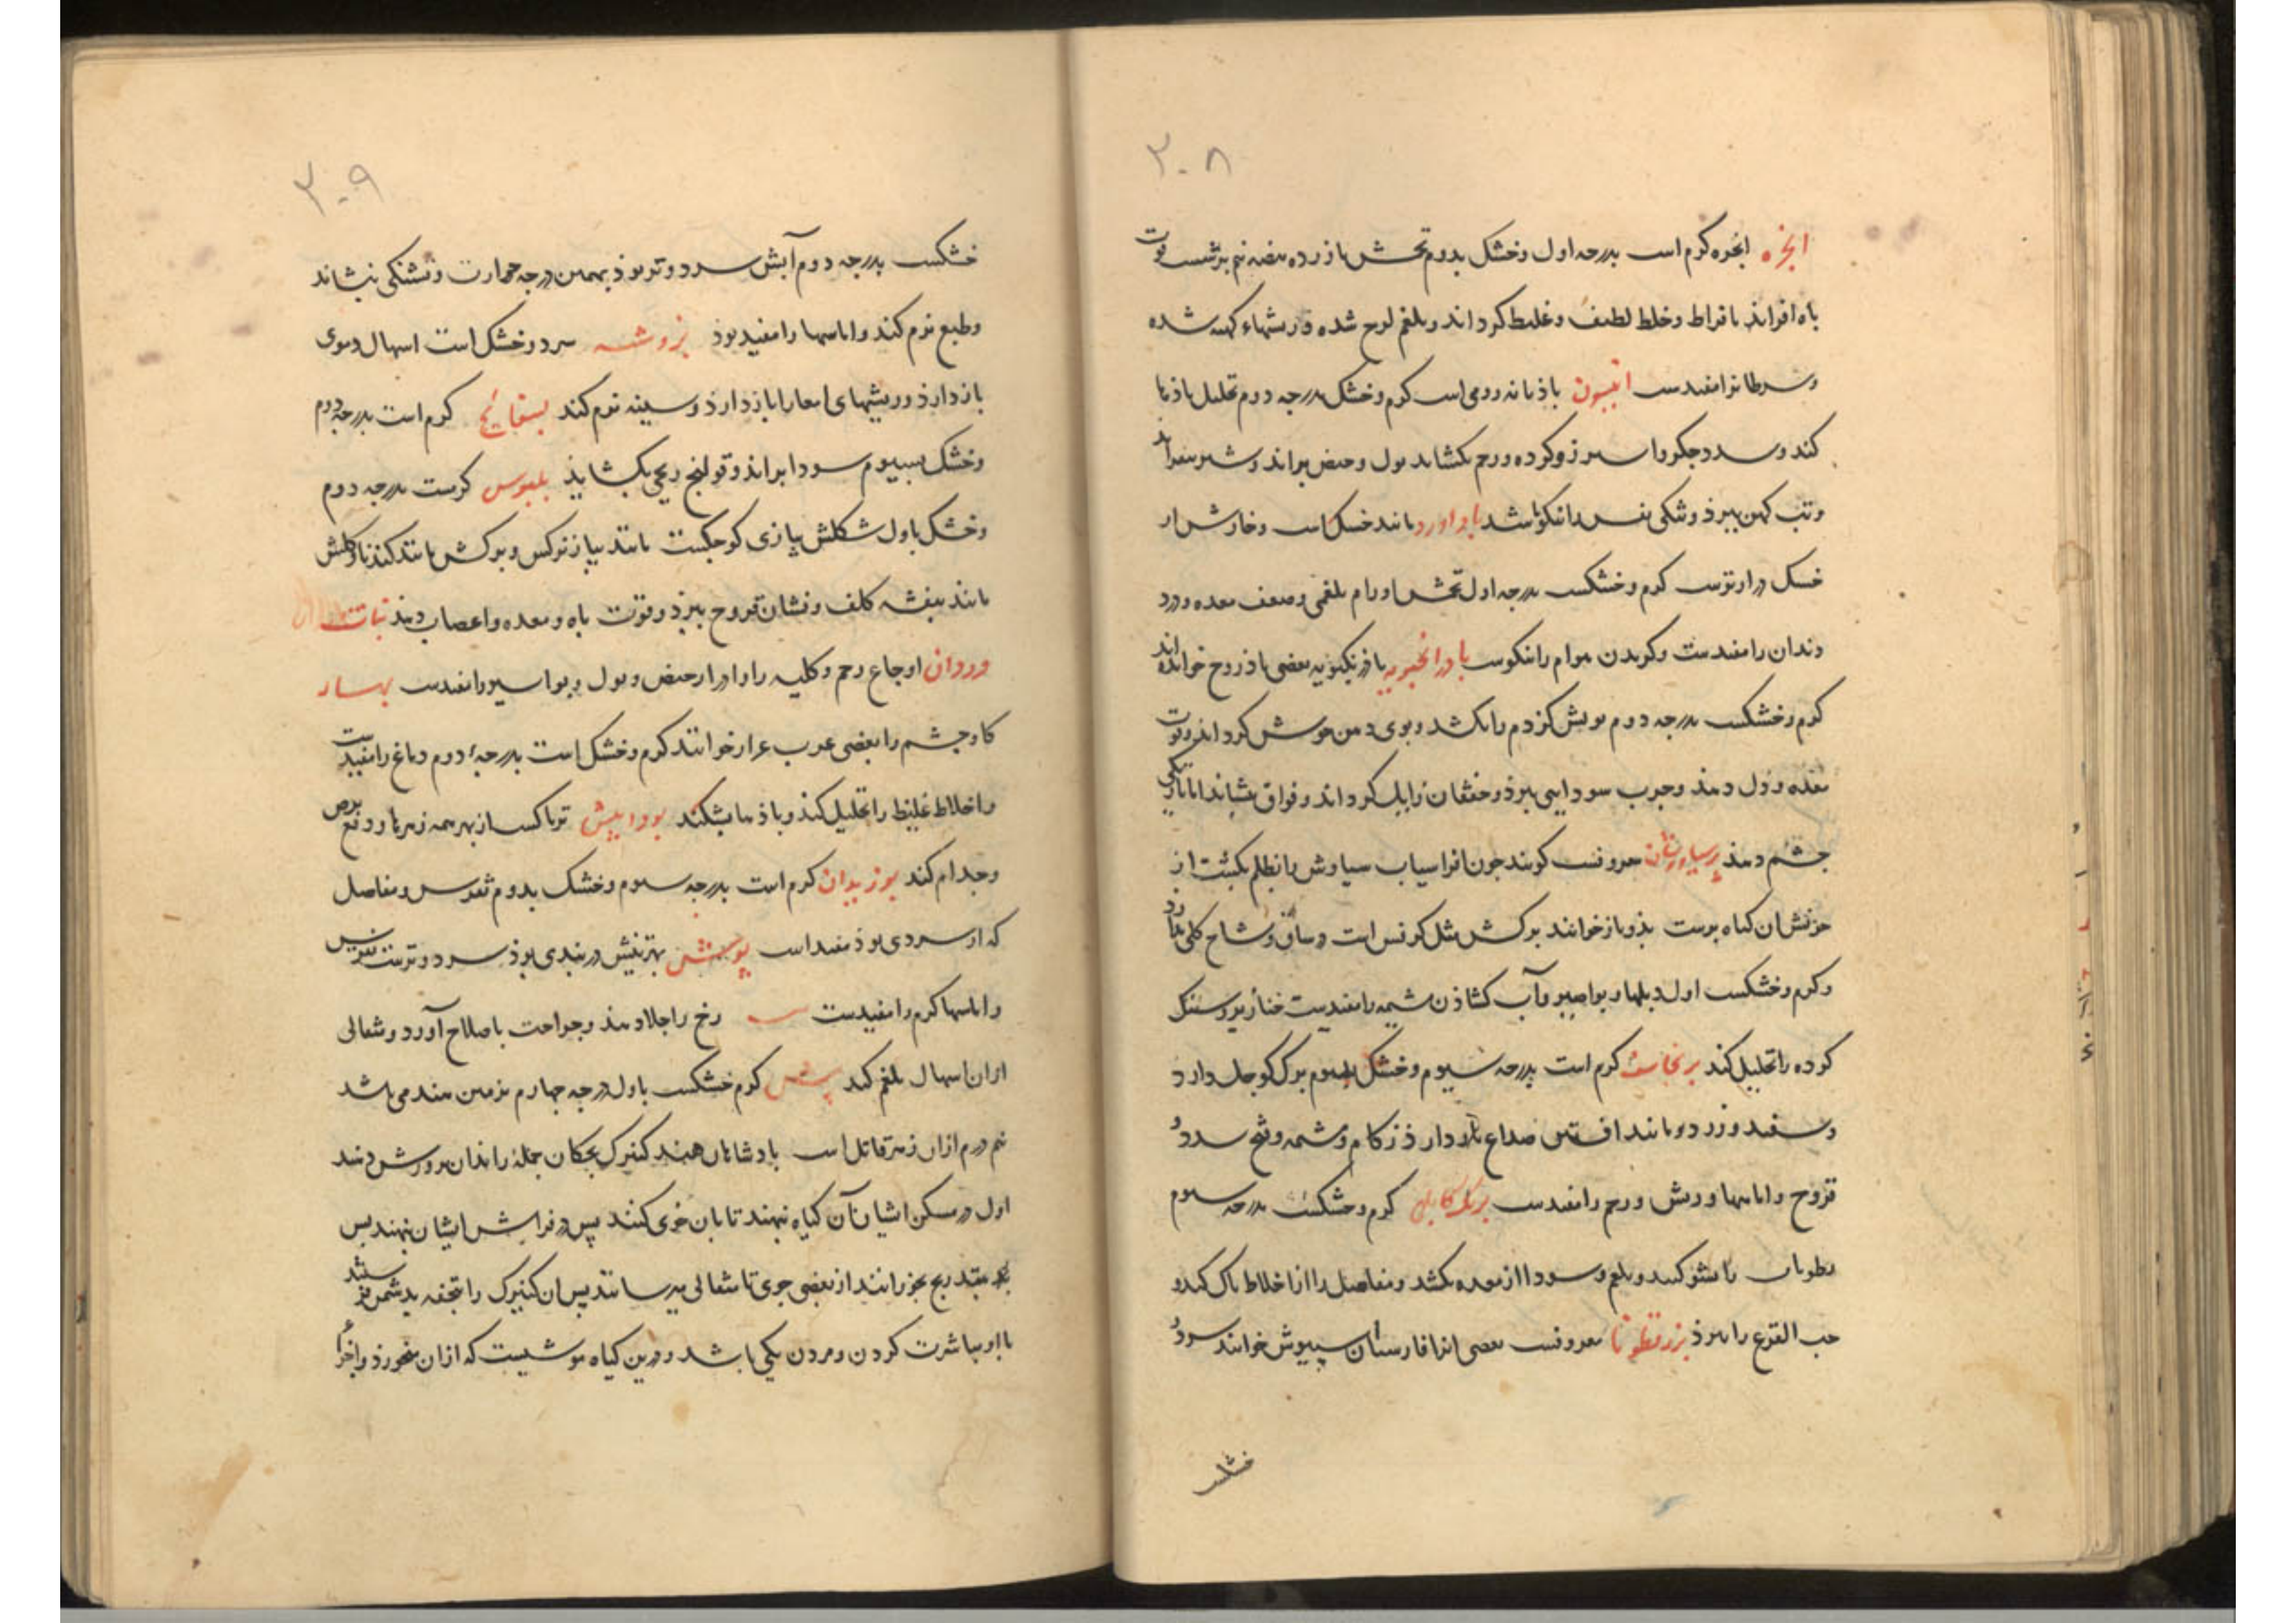 ۳۰۸
ابخره ابخره کرم است بدرجه اول وخشک بدوم تخمش با زرده بیضه نیم برشت قوت
باه افزاید بافراط وخلط لطیف وغلیظ کرداند وبلغم لوج شده وریشهاء کهنه شده
وسرطانرا مفیدست انیسون باذیانه رومی است کرم وخشک بدرجه دوم تحلیل باذها
کند وسدد جکر وسپرز وکرده ورحم بکشاید بول وحیض براند وشیر بیفزاید
وتب کهن ببرذ وتنکی نفس را نیکو باشد باداورد مانند خسک است وخارش از
خسک درازترست کرم وخشکست بدرجه اول تخمش اورام بلغمی وضعف معده ودرد
دندان را مفیدست وکزیدن هوام را نیکوست بادرانجبویه بادرنکبویه بعضی باذروج خوانده‌اند
کرم وخشکست بدرجه دوم بویش کزدم را بکشد وبوی دهن خوش کرداند وقوت
معده ودل دهذ وجرب سودایی ببرذ وخفقان زایل کرداند وفواق بنشاند اما تاریکی
چشم دهذ پرسیاوشان معروفست کویند چون افراسیاب سیاوش را بظلم بکشت از
خونش ان کیاه برست بذو بازخوانند برکش مثل کرفس است وساق وشاخ وکلی ندارد
وکرم وخشکست اول دبلها وبواصیر وآب کشاذن مشیمه را مفیدست خنازیر وسنک
کرده را تحلیل کند برنجاسف کرم است بدرجه سیوم وخشک بسیوم برک کوچک دارد
وسفید وزرد ومانند افسنتین صداع بازدارذ زکام ومشیمه وفتح سدد و
قروح واماسها وریش ورحم را مفیدست برنک کابلی کرم وخشکست بدرجه سیوم
رطوبات را نشو کند وبلغم وسودا از معده بکشد ومفاصل را از اخلاط پاک کند و
حب القرع را ببرذ بزرقطونا معروفست بعضی انرا فارسیان سپیوش خوانند سرد و
خشکست
۳۰۹
خشکست بدرجه دوم آبش سرد وتر بوذ بهمین درجه حرارت وتشنکی بنشاند
وطبع نرم کند واماسها را مفید بوذ بزروشه سرد وخشک است اسهال دموی
بازدارذ وریشهای امعا را بازدارذ وسینه نرم کند بسفایج کرم است بدرجه دوم
وخشک بسیوم سودا براند وقولنج ریحی بکشایذ بلبوس کرمست بدرجه دوم
وخشک باول شکلش پیازی کوچکست مانند پیاز نرکس وبرکش مانند کندنا وکلش
مانند بنفشه کلف ونشان قروح ببرذ وقوت باه ومعده واعصاب دهذ نبات
وردان اوجاع رحم وکلیه را وادرار حیض وبول وبواسیر را مفیدست بهار
کاوچشم را بعضی عرب عرار خوانند کرم وخشک است بدرجهٔ دوم دماغ را مفیدست
واخلاط غلیظ را تحلیل کند وباذها بشکند بوذا بیش تریاکست از بهر همه زهرها ودفع برص
وجذام کند بوزیدان کرم است بدرجه سیوم وخشک بدوم نقرس ومفاصل
که از سردی بوذ مفید است پوشش بهترینش دربندی بوذ سرد وترست نقرس
واماسها کرم را مفیدست رخ را جلا دهذ وجراحت باصلاح آورد ومثقالی
ازان اسهال بلغم کند بیش کرم خشکست باول درجه چهارم بزمین هند می باشد
نیم درم ازان زهر قاتل است پادشاهان هند کنیزک بچکان جمیله را بدان پرورش دهند
اول در مسکن ایشان آن کیاه نهند تا بان خوی کنند پس در فراش ایشان نهند پس
بتدریج بخورانند از بعضی جوی تا مثقالی برسانند پس ان کنیزک را بتحفه بدشمن فرستند
با او مباشرت کردن ومردن یکی باشد ودرین کیاه موشیست که ازان میخورذ واخرا